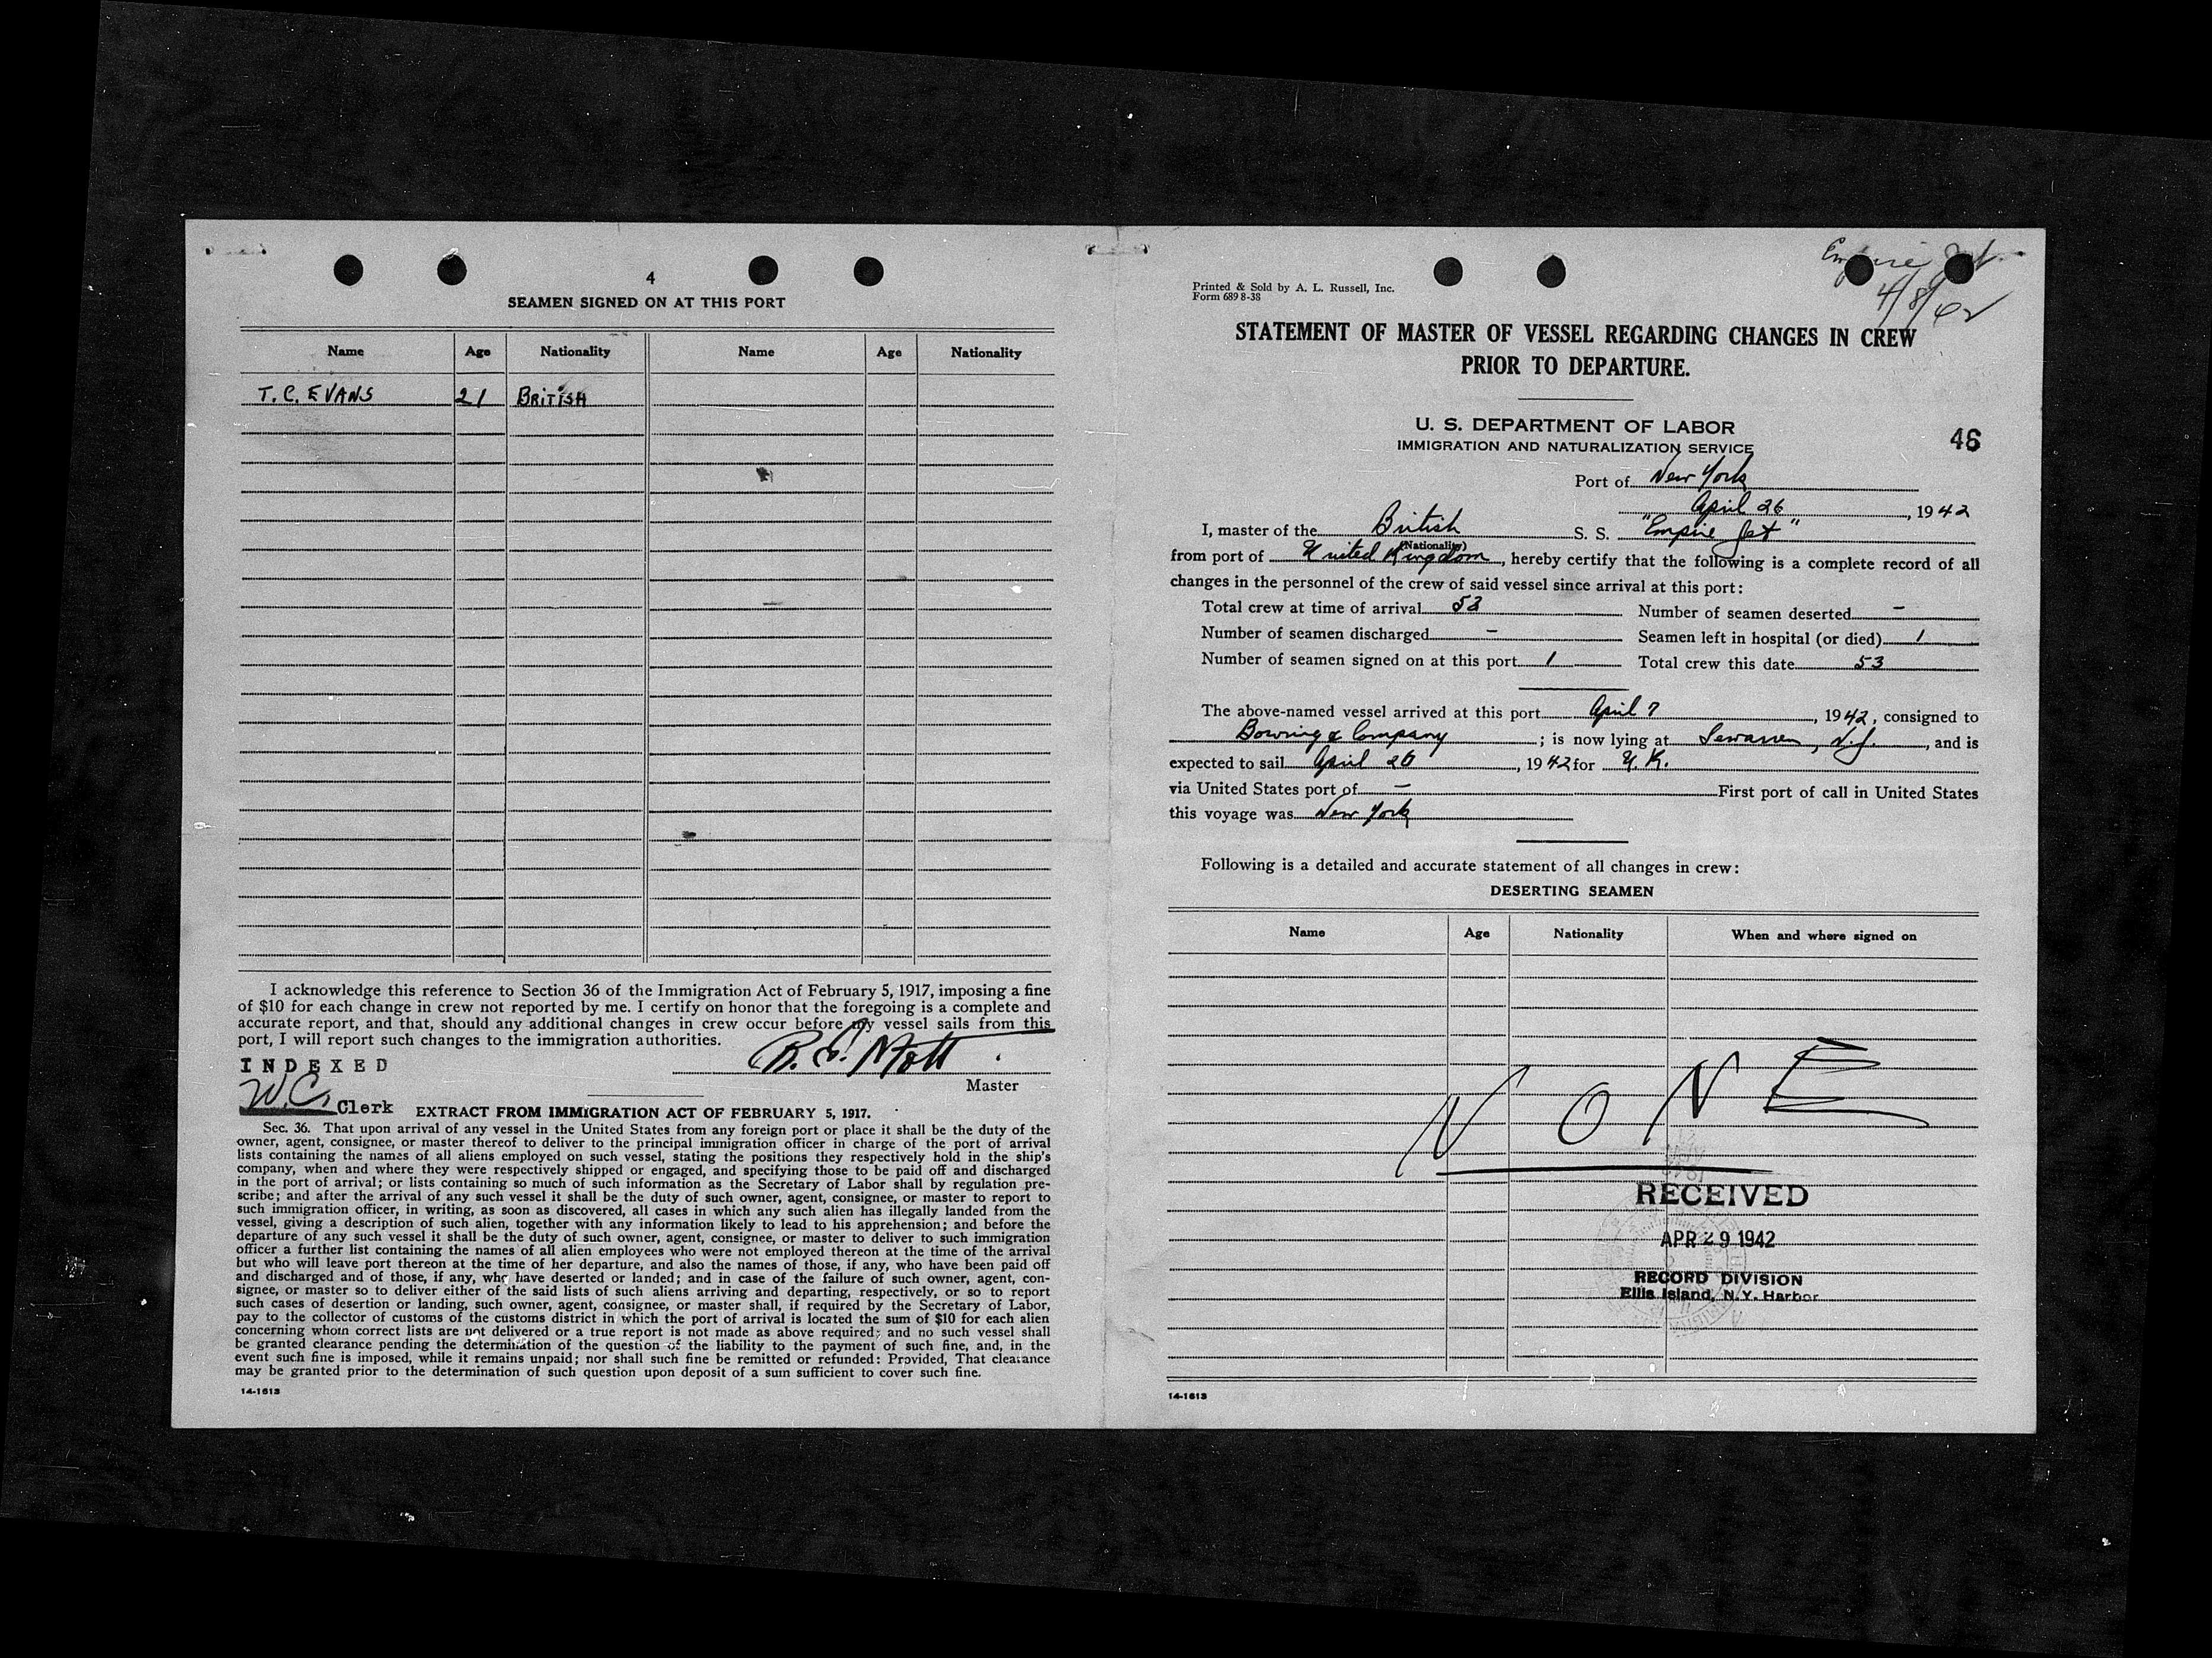 4
SEAMEN SIGNED ON AT THIS PORT
Name Age Nationality Name Age Nationality
T. C. EVANS 21 BRITISH
I acknowledge this reference to Section 36 of the Immigration Act of February 5, 1917, imposing a fine
of $10 for each change in crew not reported by me. I certify on honor that the foregoing is a complete and
accurate report, and that, should any additional changes in crew occur before my vessel sails from this
port, I will report such changes to the immigration authorities.
INDEXED
Mott
Master
W.C. Clerk
EXTRACT FROM IMMIGRATION ACT OF FEBRUARY 5, 1917.
Sec. 36. That upon arrival of any vessel in the United States from any foreign port or place it shall be the duty of the
owner, agent, consignee, or master thereof to deliver to the principal immigration officer in charge of the port of arrival
lists containing the names of all aliens employed on such vessel, stating the positions they respectively hold in the ship's
company, when and where they were respectively shipped or engaged, and specifying those to be paid off and discharged
in the port of arrival; or lists containing so much of such information as the Secretary of Labor shall by regulation pre-
scribe; and after the arrival of any such vessel it shall be the duty of such owner, agent, consignee, or master to report to
such immigration officer, in writing, as soon as discovered, all cases in which any such alien has illegally landed from the
vessel, giving a description of such alien, together with any information likely to lead to his apprehension; and before the
departure of any such vessel it shall be the duty of such owner, agent, consignee, or master to deliver to such immigration
officer a further list containing the names of all alien employees who were not employed thereon at the time of the arrival
but who will leave port thereon at the time of her departure, and also the names of those, if any, who have been paid off
and discharged and of those, if any, who have deserted or landed; and in case of the failure of such owner, agent, con-
signee, or master so to deliver either of the said lists of such aliens arriving and departing, respectively, or so to report
such cases of desertion or landing, such owner, agent, consignee, or master shall, if required by the Secretary of Labor,
pay to the collector of customs of the customs district in which the port of arrival is located the sum of $10 for each alien
concerning whom correct lists are not delivered or a true report is not made as above required; and no such vessel shall
be granted clearance pending the determination of the question of the liability to the payment of such fine, and, in the
event such fine is imposed, while it remains unpaid; nor shall such fine be remitted or refunded: Provided, That clearance
may be granted prior to the determination of such question upon deposit of a sum sufficient to cover such fine.
14-1613
Empire Jet
4/8/42
Printed & Sold by A. L. Russell, Inc.
Form 689 8-38
STATEMENT OF MASTER OF VESSEL REGARDING CHANGES IN CREW
PRIOR TO DEPARTURE.
U. S. DEPARTMENT OF LABOR
IMMIGRATION AND NATURALIZATION SERVICE
46
Port of New York
April 26, 1942
I, master of the British S. S. "Empire Jet"
(Nationality)
from port of United Kingdom, hereby certify that the following is a complete record of all
changes in the personnel of the crew of said vessel since arrival at this port:
Total crew at time of arrival 53 Number of seamen deserted –
Number of seamen discharged – Seamen left in hospital (or died) 1
Number of seamen signed on at this port 1 Total crew this date 53
The above-named vessel arrived at this port April 7, 1942, consigned to
Bowring & Company; is now lying at Sewaren, N.J., and is
expected to sail April 26, 1942 for U.K.
via United States port of – First port of call in United States
this voyage was New York
Following is a detailed and accurate statement of all changes in crew:
DESERTING SEAMEN
Name Age Nationality When and where signed on
NONE
RECEIVED
APR 29 1942
RECORD DIVISION
Ellis Island, N.Y. Harbor
14-1613